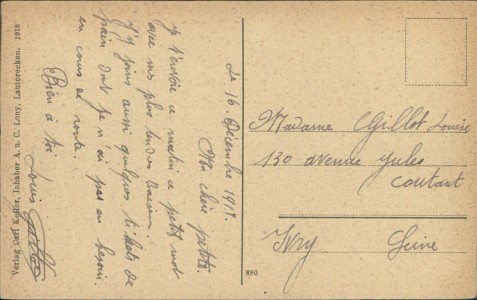 Le 16. Décembre 1918.
Ma chère petite.
Je t'envoie ce matin ce petit mot
avec mes plus tendres baisers.
J'y joins aussi quelques tickets de
pain dont je n'ai pas eu besoin
en cours de route.
Bien à toi
Louis
Madame Gillot Louise
130 avenue Jules
Coutant
Ivry Seine
880
Verlag Carl Keller, Inhaber A. u. C. Loey, Lauterecken. 1918